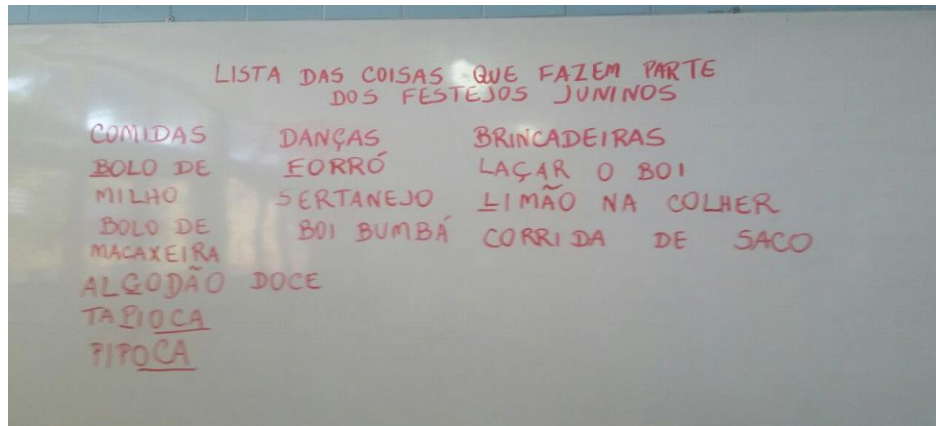 LISTA DAS COISAS QUE FAZEM PARTE
DOS FESTEJOS JUNINOS
COMIDAS
BOLO DE
MILHO
BOLO DE
MACAXEIRA
ALGODÃO DOCE
TAPIOCA
PIPOCA
DANÇAS
FORRÓ
SERTANEJO
BOI BUMBÁ
BRINCADEIRAS
LAÇAR O BOI
LIMÃO NA COLHER
CORRIDA DE SACO